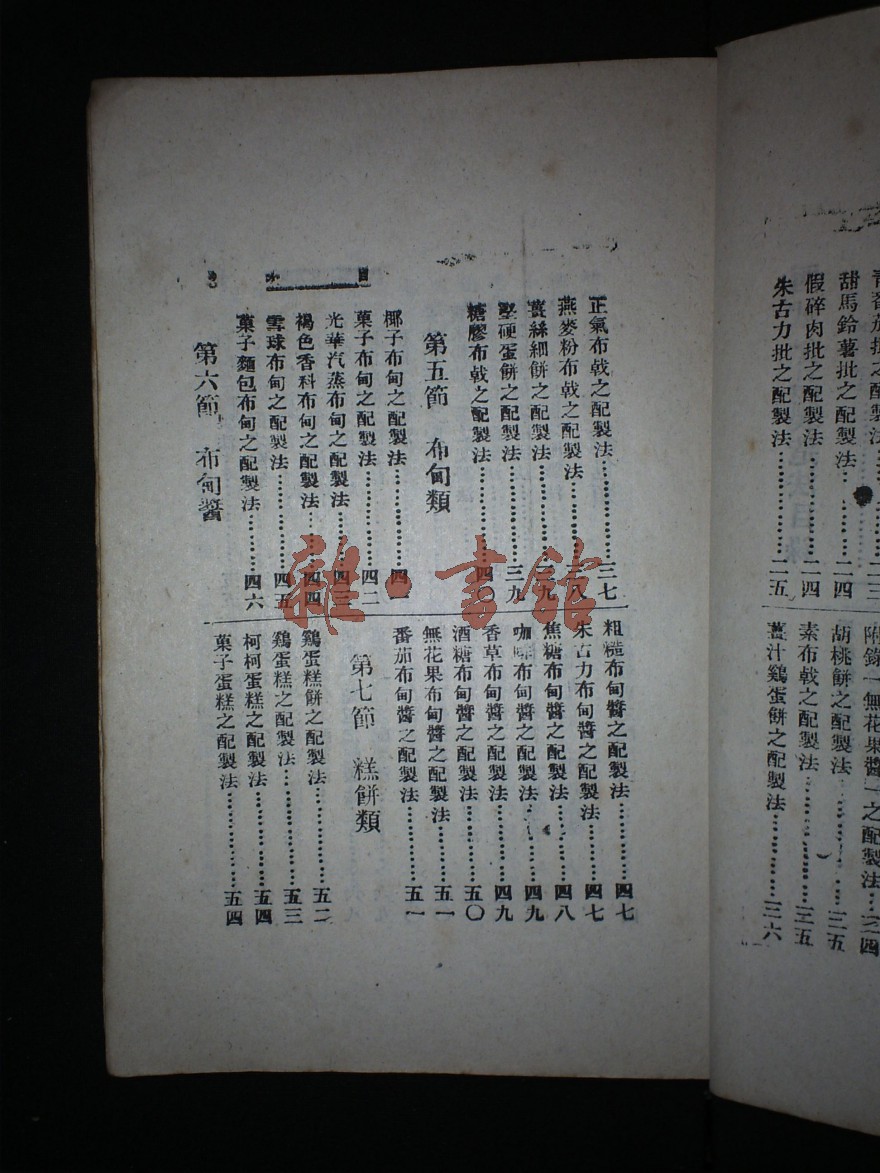 甜馬鈴薯批之配製法………二四
假碎肉批之配製法………二四
朱古力批之配製法………二五
附錄一無花果醬一之配製法…三四
胡桃餅之配製法………三五
素布戟之配製法………三五
薑汁鷄蛋餅之配製法………三六
正氣布戟之配製法………三七
燕麥粉布戟之配製法………三八
薑絲細餅之配製法………三九
堅硬蛋餅之配製法………三九
糖膠布戟之配製法………四〇
第五節 布甸類
椰子布甸之配製法………四一
菓子布甸之配製法………四二
光華汽蒸布甸之配製法………四三
褐色香科布甸之配製法………四四
雪球布甸之配製法………四五
菓子麵包布甸之配製法………四六
第六節 布甸醬
粗糙布甸醬之配製法………四七
朱古力布甸醬之配製法………四七
焦糖布甸醬之配製法………四八
咖啡布甸醬之配製法………四九
香草布甸醬之配製法………四九
酒糖布甸醬之配製法………五〇
無花果布甸醬之配製法………五一
番茄布甸醬之配製法………五一
第七節 糕餅類
鷄蛋糕餅之配製法………五二
鷄蛋糕之配製法………五三
柯柯蛋糕之配製法………五四
菓子蛋糕之配製法………五四
雜·書館